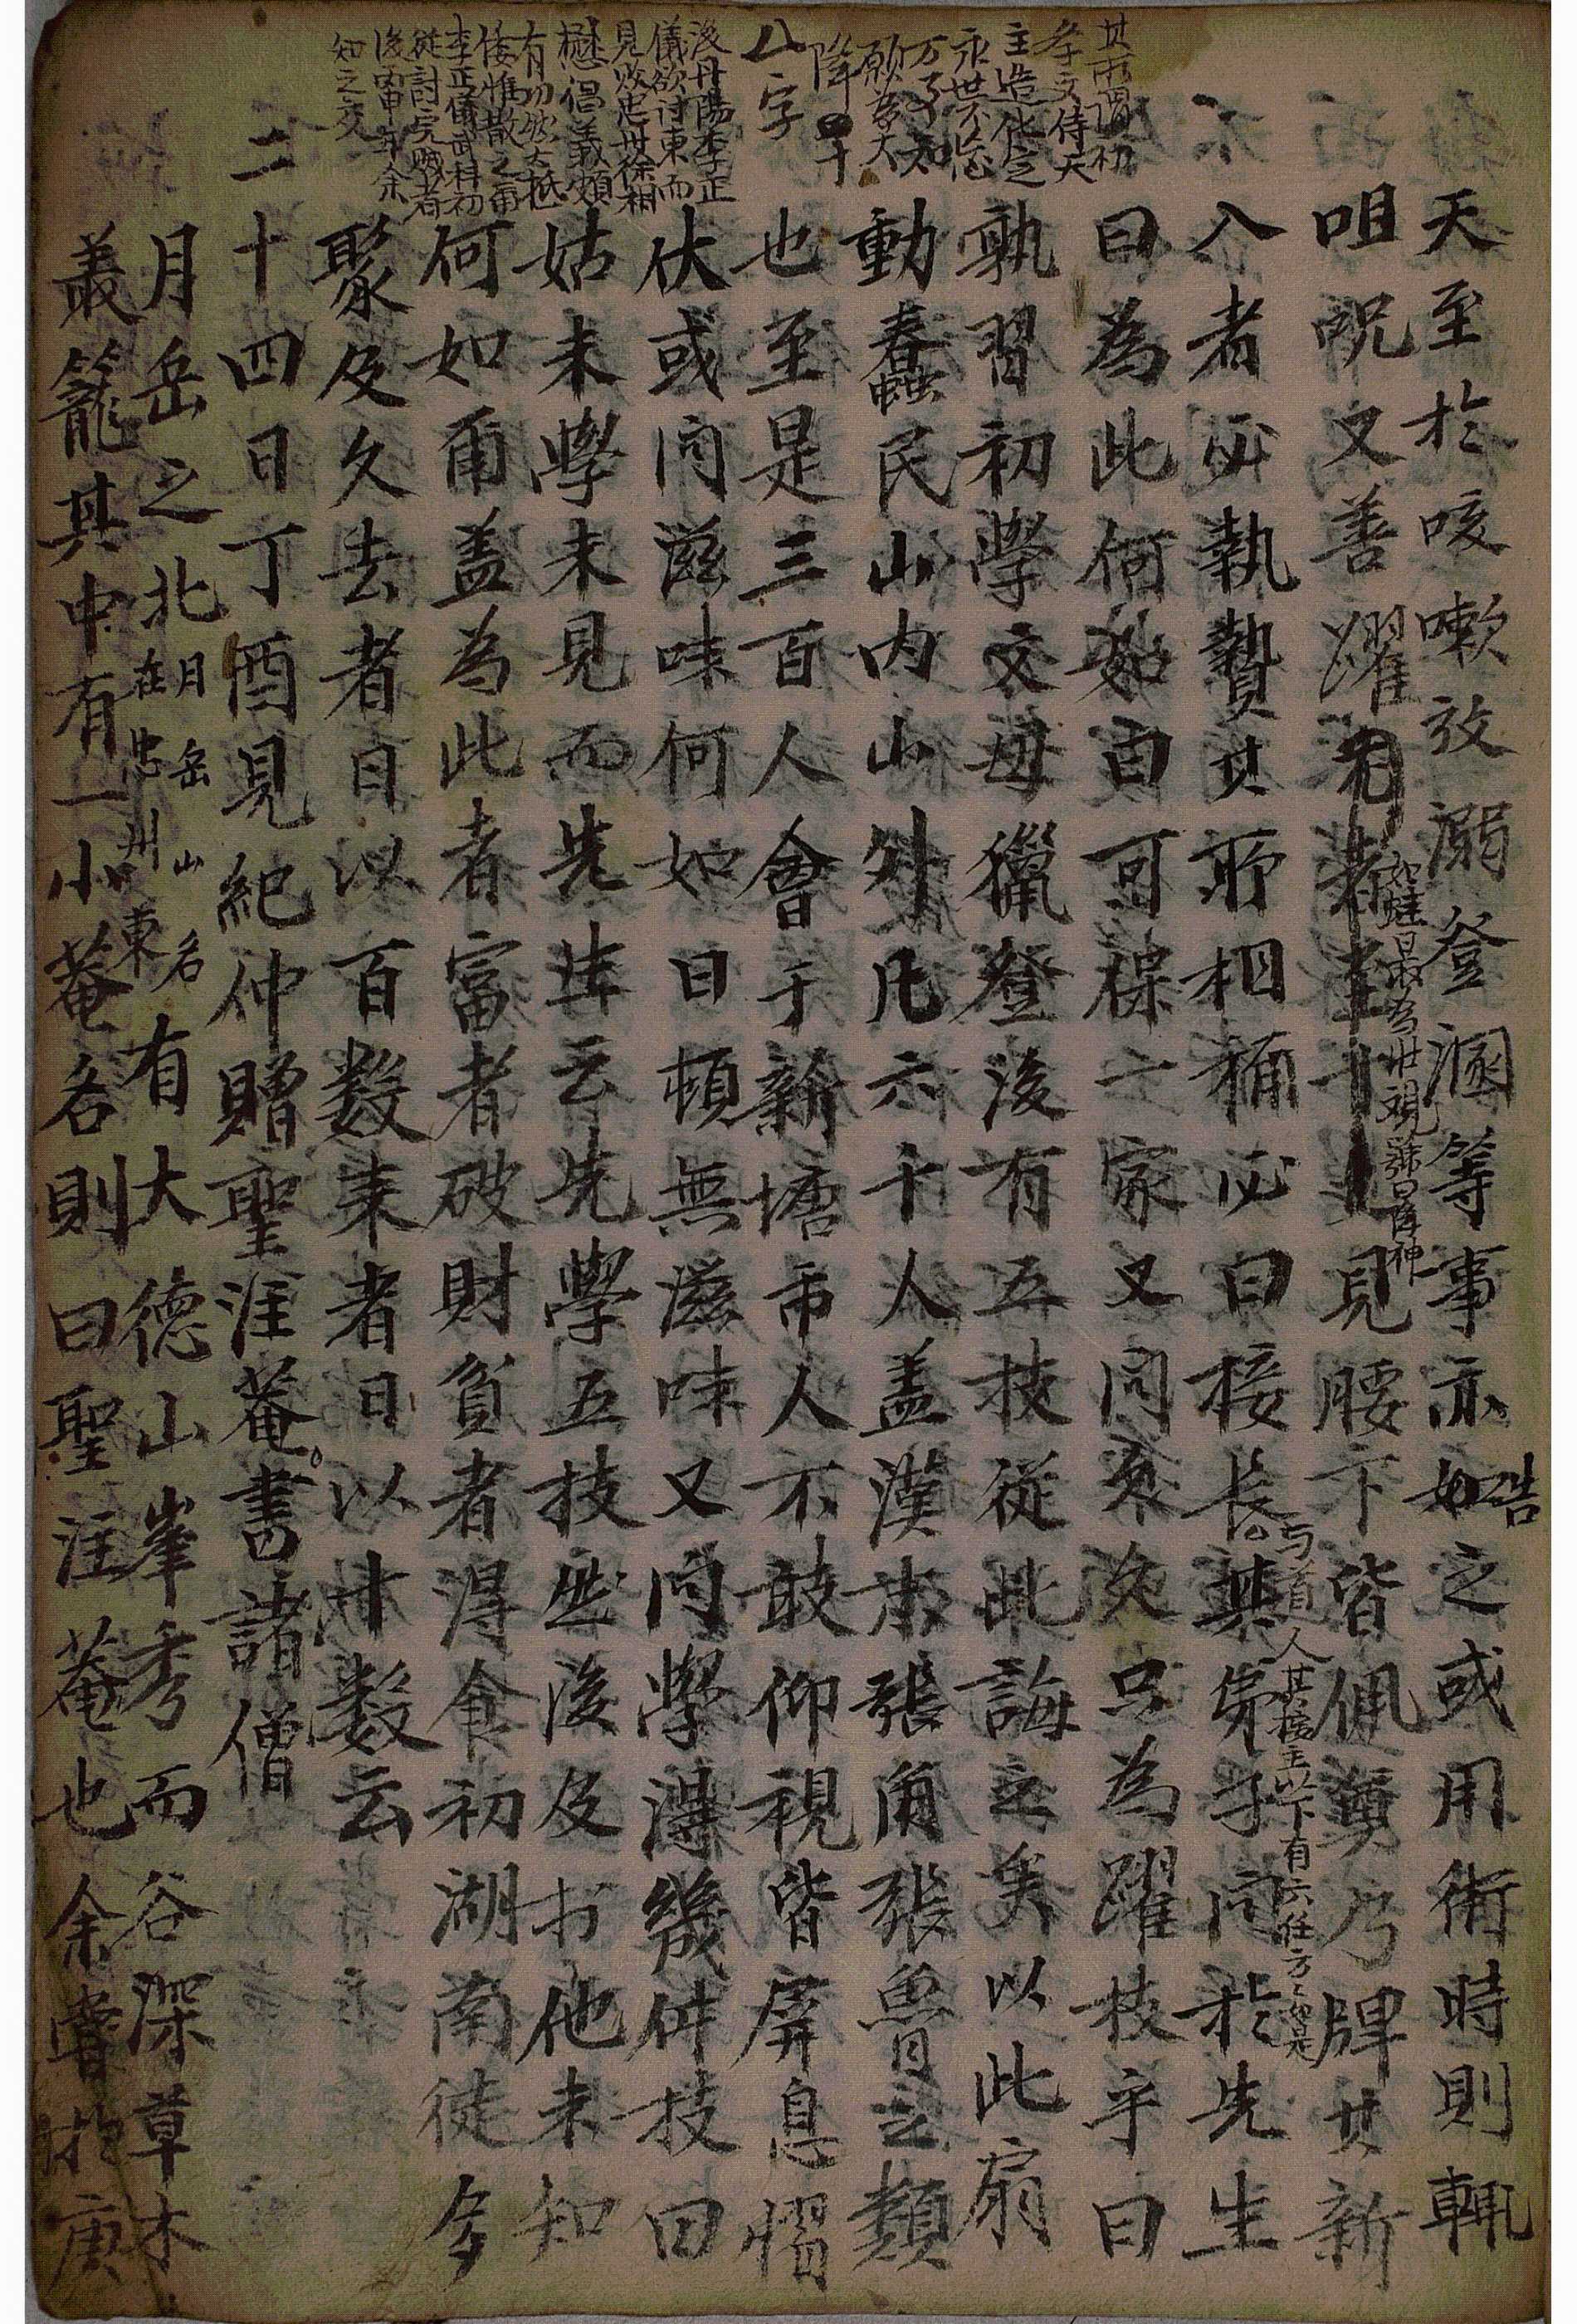 其所謂初
學文侍天
主造化定
永世不忘
万事知
願爲大
降四十
八字
後丹陽李正
儀欲討東而
見敗忠州徐相
懋倡義頗
有功然大抵
倭惟散之爾
李正儀武科初
從討完賊者
後雷申年余
知之交
天至於咳嗽放溺登溷等事亦如告之或用術時則輒
咀呪又善躍見腰下皆佩籩乃牌其新
如蛙曰最爲壯觀號曰降神
入者必執贄其所相稱必曰接長其弟子問於先生
与道人其接主以下有六任方之如是
曰爲此何如曰可保一家又問不久只爲躍技乎曰
孰習初學文毋獵登後有五技從此誨之矣以此扇
動蠢民山內山外凡六千人盖漢末張角張魚之類
也至是三百人會于新塘市人不敢仰視皆屏息慴
伏或問滋味何如曰頓無滋味又問學得幾件技曰
姑未學未見而先生云先學五技然後及於他未知
何如爾盖爲此者富者破財貧者得食初湖南徒多
聚及久去者日以百數來者日以十數云
二十四日丁酉見紀仲贈聖注菴書諸僧
月岳之北月岳山名在忠州東有大德山峯秀而谷深草木
叢籠其中有一小菴名則曰聖注菴也余嘗於庚